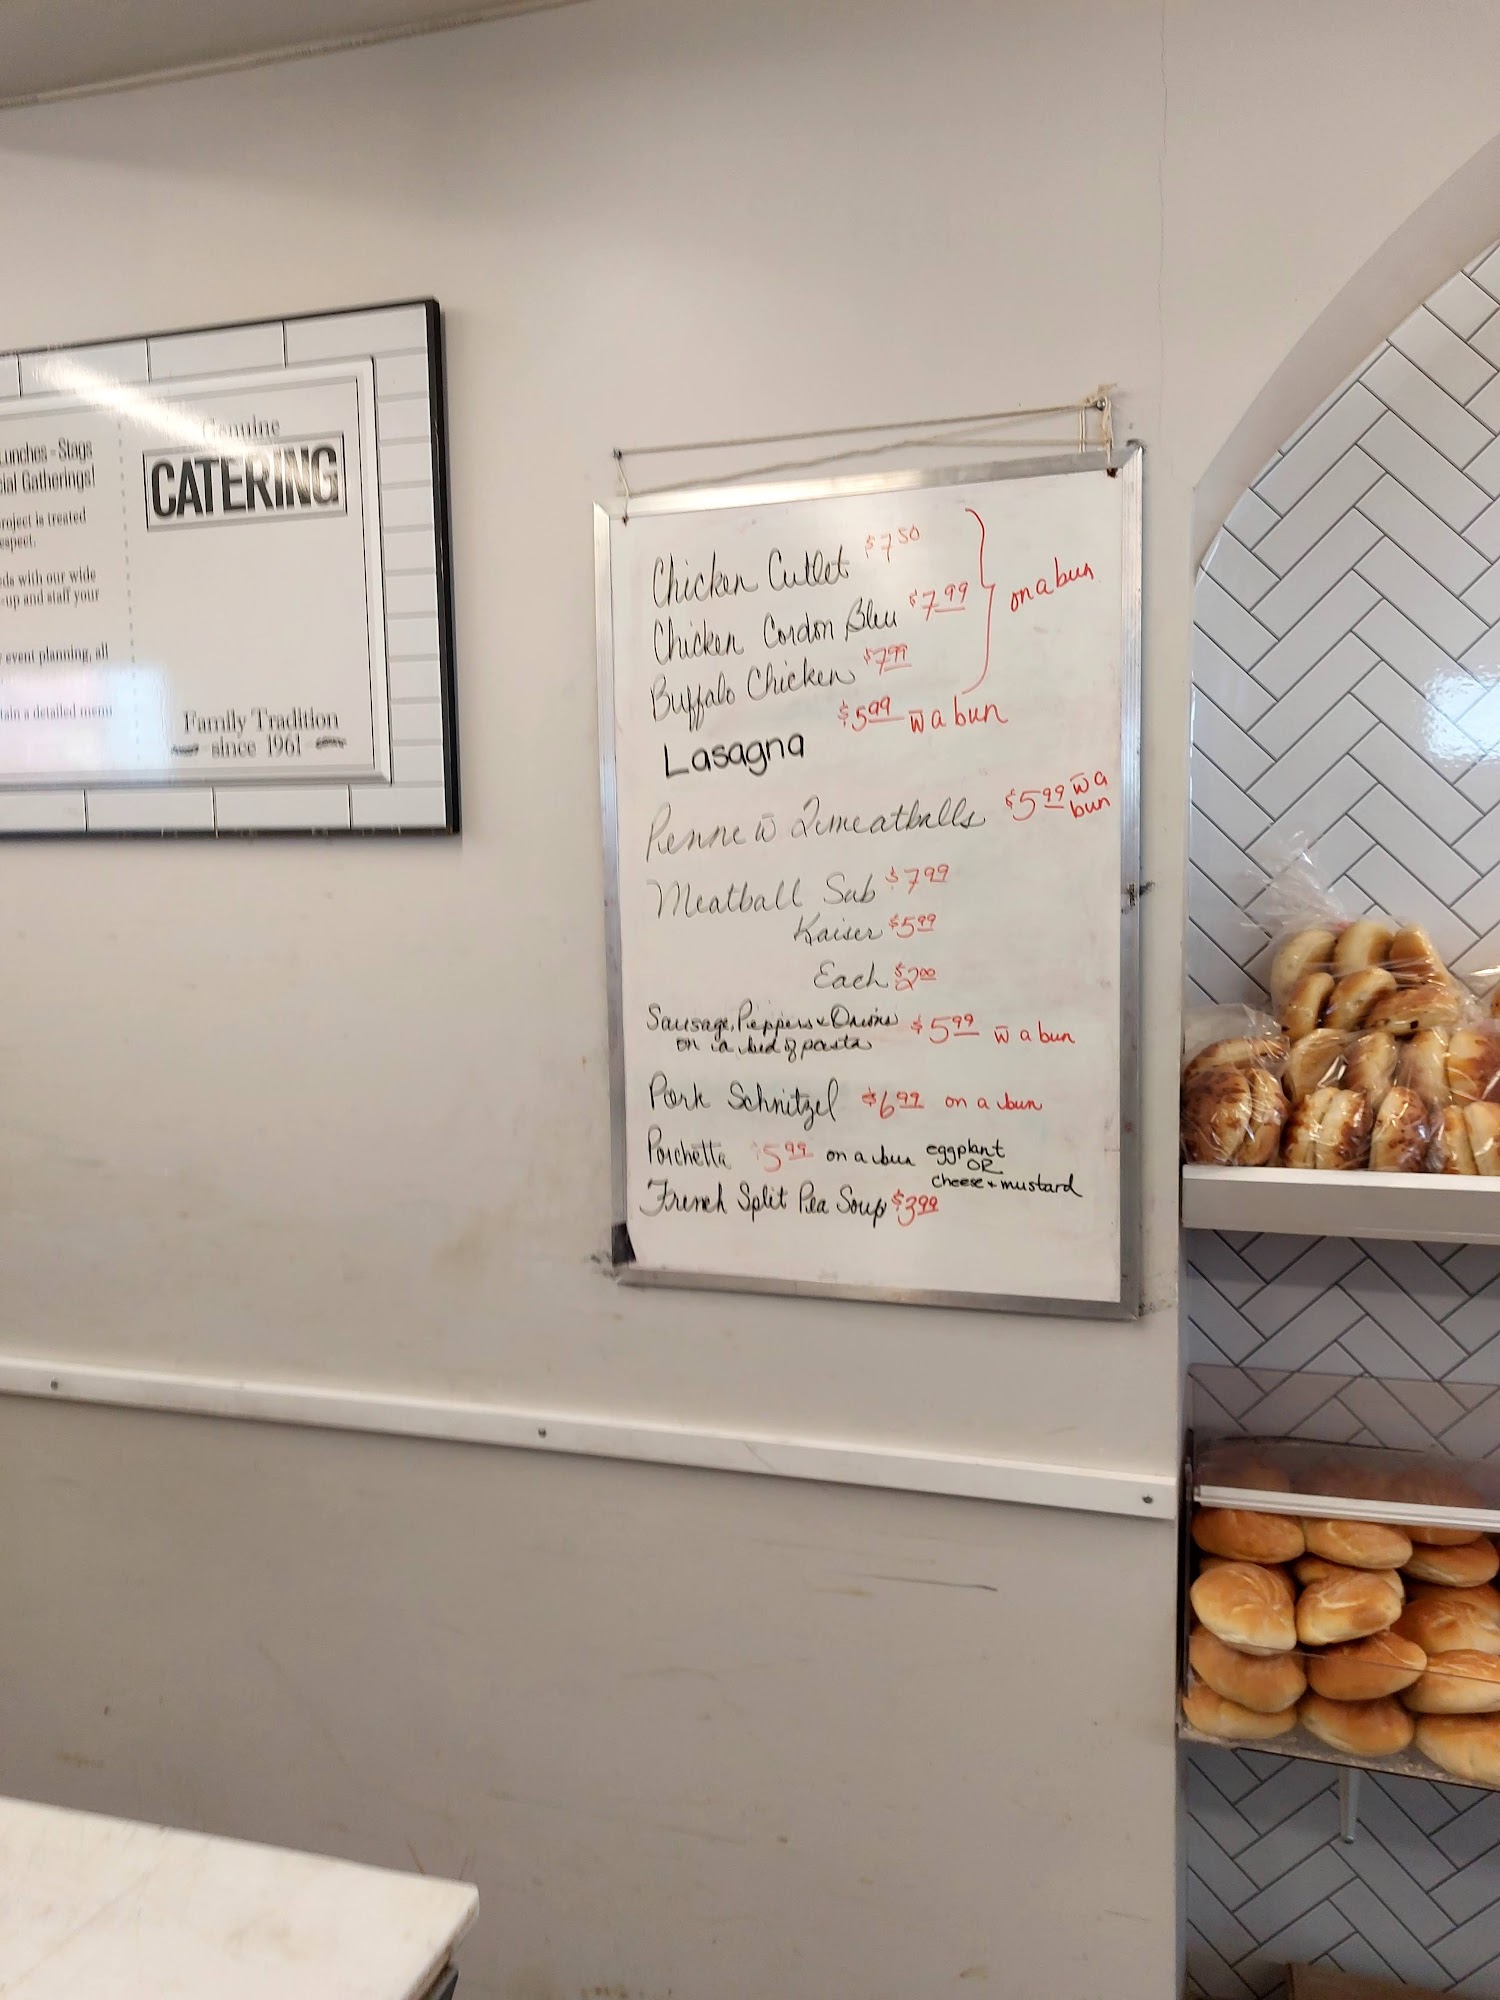 Lunches - Stags
cial Gatherings!
project is treated
espect.
ds with our wide
-up and staff your
event planning, all
tain a detailed menu
Genuine
CATERING
Family Tradition
since 1961
Chicken Cutlet $7.50
Chicken Cordon Bleu $7.99
Buffalo Chicken $7.99
on a bun
Lasagna $5.99 w̄ a bun
Penne w̄ 2 meatballs $5.99 w̄ a
bun
Meatball Sub $7.99
Kaiser $5.99
Each $2.00
Sausage, Peppers + Onions $5.99 w̄ a bun
on a bed of pasta
Pork Schnitzel $6.99 on a bun
Porchetta $5.99 on a bun eggplant
OR
cheese + mustard
French Split Pea Soup $3.99